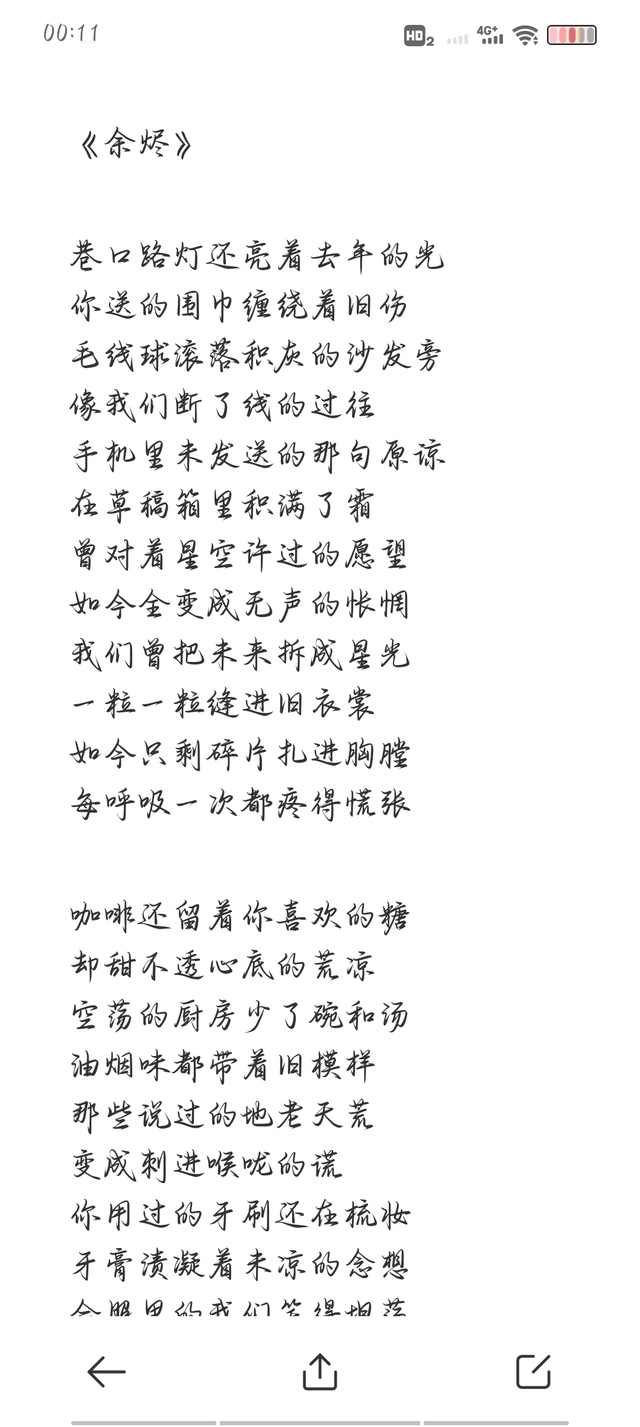 00:11
HD2
4G+
《余烬》
巷口路灯还亮着去年的光
你送的围巾缠绕着旧伤
毛线球滚落积灰的沙发旁
像我们断了线的过往
手机里未发送的那句原谅
在草稿箱里积满了霜
曾对着星空许过的愿望
如今全变成无声的怅惘
我们曾把未来拆成星光
一粒一粒缝进旧衣裳
如今只剩碎片扎进胸膛
每呼吸一次都疼得慌张
咖啡还留着你喜欢的糖
却甜不透心底的荒凉
空荡的厨房少了碗和汤
油烟味都带着旧模样
那些说过的地老天荒
变成刺进喉咙的谎
你用过的牙刷还在梳妆
牙膏渍凝着未凉的念想
合照里的我们笑得坦荡